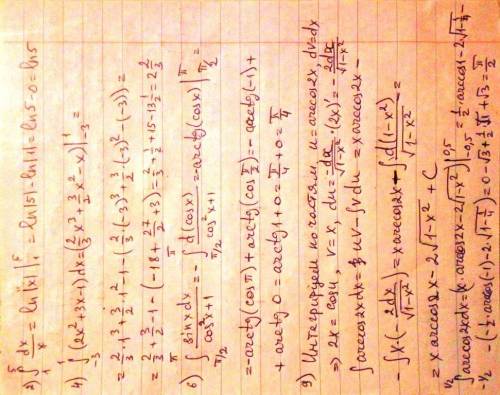 2) ∫₁⁵ dx/x = ln|x| |₁⁵ = ln|5| - ln|1| = ln5 - 0 = ln5
4) ∫₋₃¹ (2x² + 3x - 1)dx = (2/3 x³ + 3/2 x² - x) |₋₃¹ =
= 2/3 · 1³ + 3/2 · 1² - 1 - (2/3 · (-3)³ + 3/2 · (-3)² - (-3)) =
= 2/3 + 3/2 - 1 - (-18 + 27/2 + 3) = 2/3 + 1/2 + 15 - 13 1/2 = 2 2/3
6) ∫_{π/2}^{π} sinx dx / cos²x+1 = - ∫_{π/2}^{π} d(cosx) / cos²x+1 = -arctg(cosx) |_{π/2}^{π} =
= -arctg(cosπ) + arctg(cos π/2) = -arctg(-1) +
+ arctg 0 = arctg1 + 0 = π/4 + 0 = π/4
9) Интегрируем по частям u = arccos2x, dv = dx
⇒ 2x = cosu, v = x, du = - dx/√1-x² · (2x)' = - 2dx/√1-x²
∫arccos2x dx = uv - ∫v du = x arccos2x -
- ∫x·(- 2dx/√1-x²) = x arccos2x - ∫ d(1-x²)/√1-x² =
= x arccos2x - 2√1-x² + C
∫_{-1/2}^{1/2} arccos2x dx = (x·arccos2x - 2√1-x²) |_{-0,5}^{0,5} = 1/2 · arccos1 - 2√1-1/4 -
- (-1/2 · arccos(-1) - 2·√1-1/4) = 0 - √3 + 1/2 · π + √3 = π/2